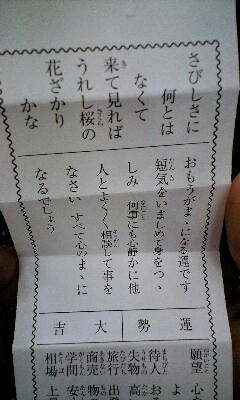 さびしさに
何とは
なくて
来て見れば
うれし桜の
花ざかり
かな
おもうがまゝになる運です
短気をいましめて身をつゝ
しみ 何事にも心静かに他
人とよく〱相談して事を
なさい すべて心のまゝに
なるでしょう
運勢 大吉
願望 心
よ
待人 お
失物 高
旅行 出
商売 物
学問 安
相場 上